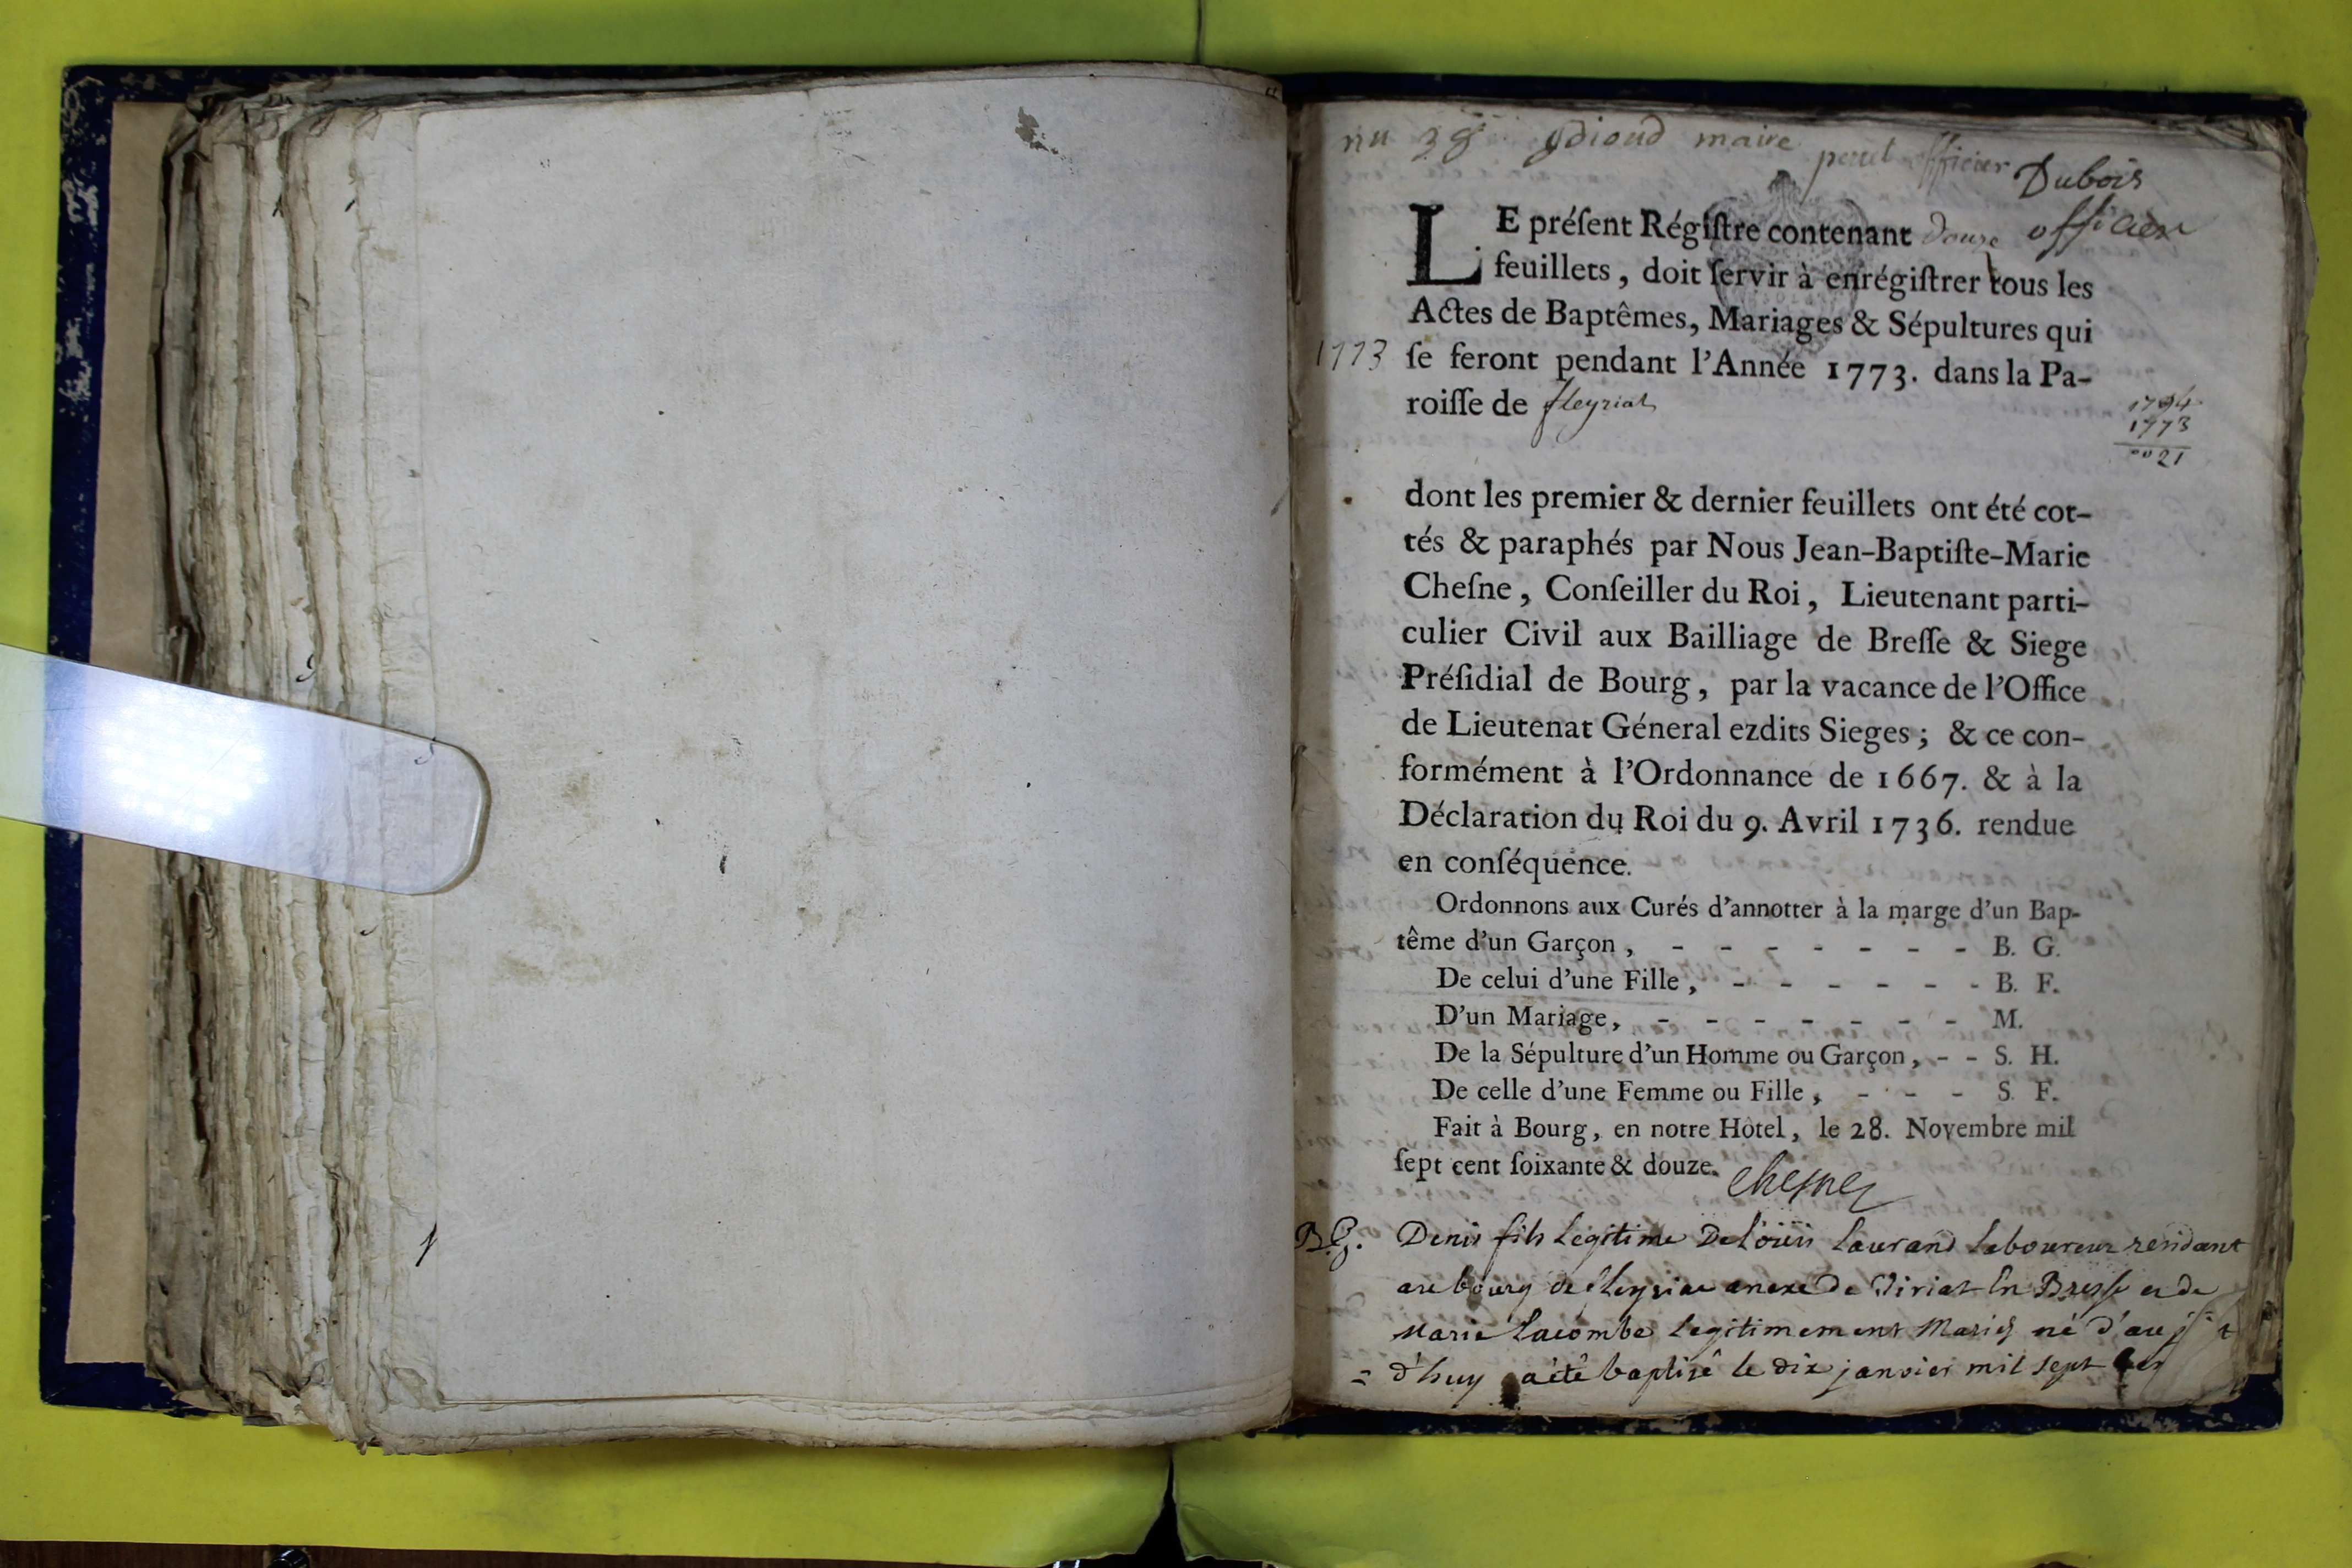 nu 38 gdioud maire
perret officier Dubois
officier
LE préſent Régiſtre contenant douze
feuillets, doit ſervir à enrégiſtrer tous les
Actes de Baptêmes, Mariages & Sépultures qui
1773 ſe feront pendant l'Année 1773. dans la Pa-
roiſſe de fleyriat
1794
1773
0021
dont les premier & dernier feuillets ont été cot-
tés & paraphés par Nous Jean-Baptiſte-Marie
Cheſne, Conſeiller du Roi, Lieutenant parti-
culier Civil aux Bailliage de Breſſe & Siege
Préſidial de Bourg, par la vacance de l'Office
de Lieutenat Géneral ezdits Sieges; & ce con-
formément à l'Ordonnance de 1667. & à la
Déclaration du Roi du 9. Avril 1736. rendue
en conſéquence.
Ordonnons aux Curés d'annotter à la marge d'un Bap-
tême d'un Garçon, - - - - - - - B. G.
De celui d'une Fille, - - - - - - B. F.
D'un Mariage, - - - - - - - M.
De la Sépulture d'un Homme ou Garçon, - - S. H.
De celle d'une Femme ou Fille, - - - S. F.
Fait à Bourg, en notre Hôtel, le 28. Novembre mil
ſept cent ſoixante & douze. Chesne
B.G. Denis fils légitime De Loüis Laurand Laboureur résidant
au bourg de fleyriat anexe De Viriat En Bresse et de
Marie Lacombe Legitimement Mariés né d'au
= d'huy a été baptisé le dix janvier mil sept